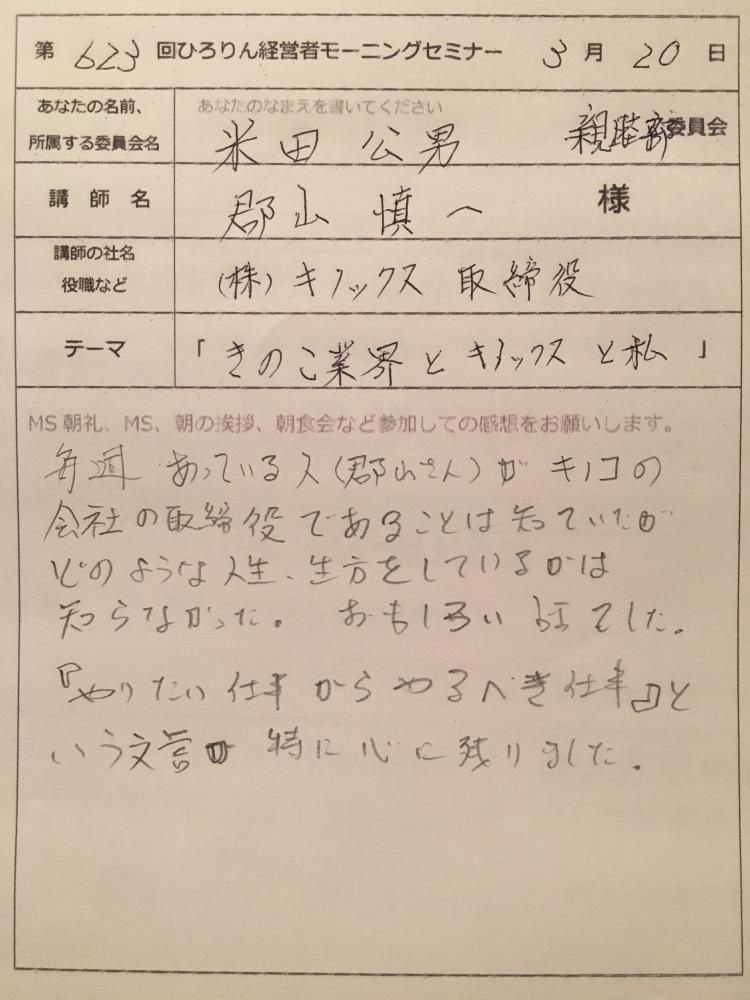 第 623 回ひろりん経営者モーニングセミナー 3 月 20 日
あなたの名前、
所属する委員会名
あなたのなまえを書いてください
米田 公男 親睦部 委員会
講師名 郡山 慎一 様
講師の社名
役職など
(株)キノックス 取締役
テーマ 「きのこ業界とキノックスと私」
MS朝礼、MS、朝の挨拶、朝食会など参加しての感想をお願いします。
毎週 あっている人(郡山さん)が キノコの
会社の取締役であることは知っていたが
どのような人生、生方をしているかは
知らなかった。 おもしろい話でした。
『やりたい仕事からやるべき仕事』と
いう文言が 特に心に残りました。